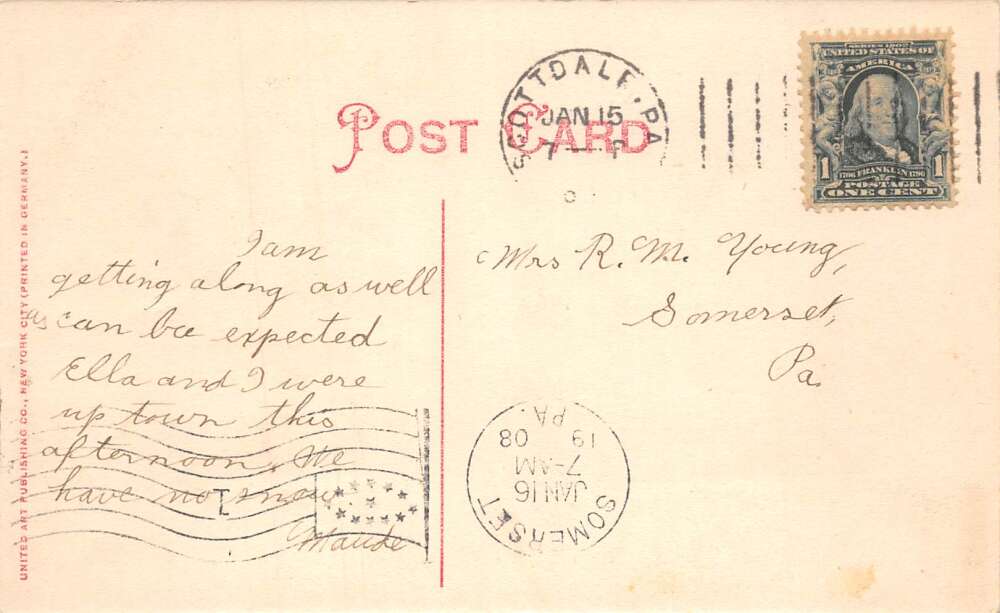 POST CARD
SCOTTDALE, PA
JAN 15
7 — P
SERIES 1902
UNITED STATES OF
AMERICA
1706 FRANKLIN 1790
POSTAGE
1 1
ONE CENT
I am
getting along as well
as can be expected
Ella and I were
up town this
afternoon. We
have no snow.
Maude
Mrs R. M. Young,
Somerset,
Pa.
SOMERSET
JAN 16
7-AM
19 08
PA.
1
UNITED ART PUBLISHING CO., NEW YORK CITY (PRINTED IN GERMANY.)